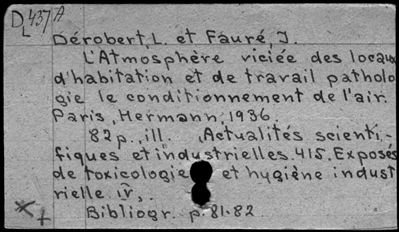 DL437A
Dérobert, L. et Fauré, J.
L'Atmosphère viciée des locaux
d'habitation et de travail patholo
gie le conditionnement de l'air.
Paris, Hermann, 1936.
82p., ill. Actualités scienti-
fiques et industrielles. 415. Exposés
de toxicologie et hygiène indust
rielle IV,.
Bibliogr. p. 81-82.